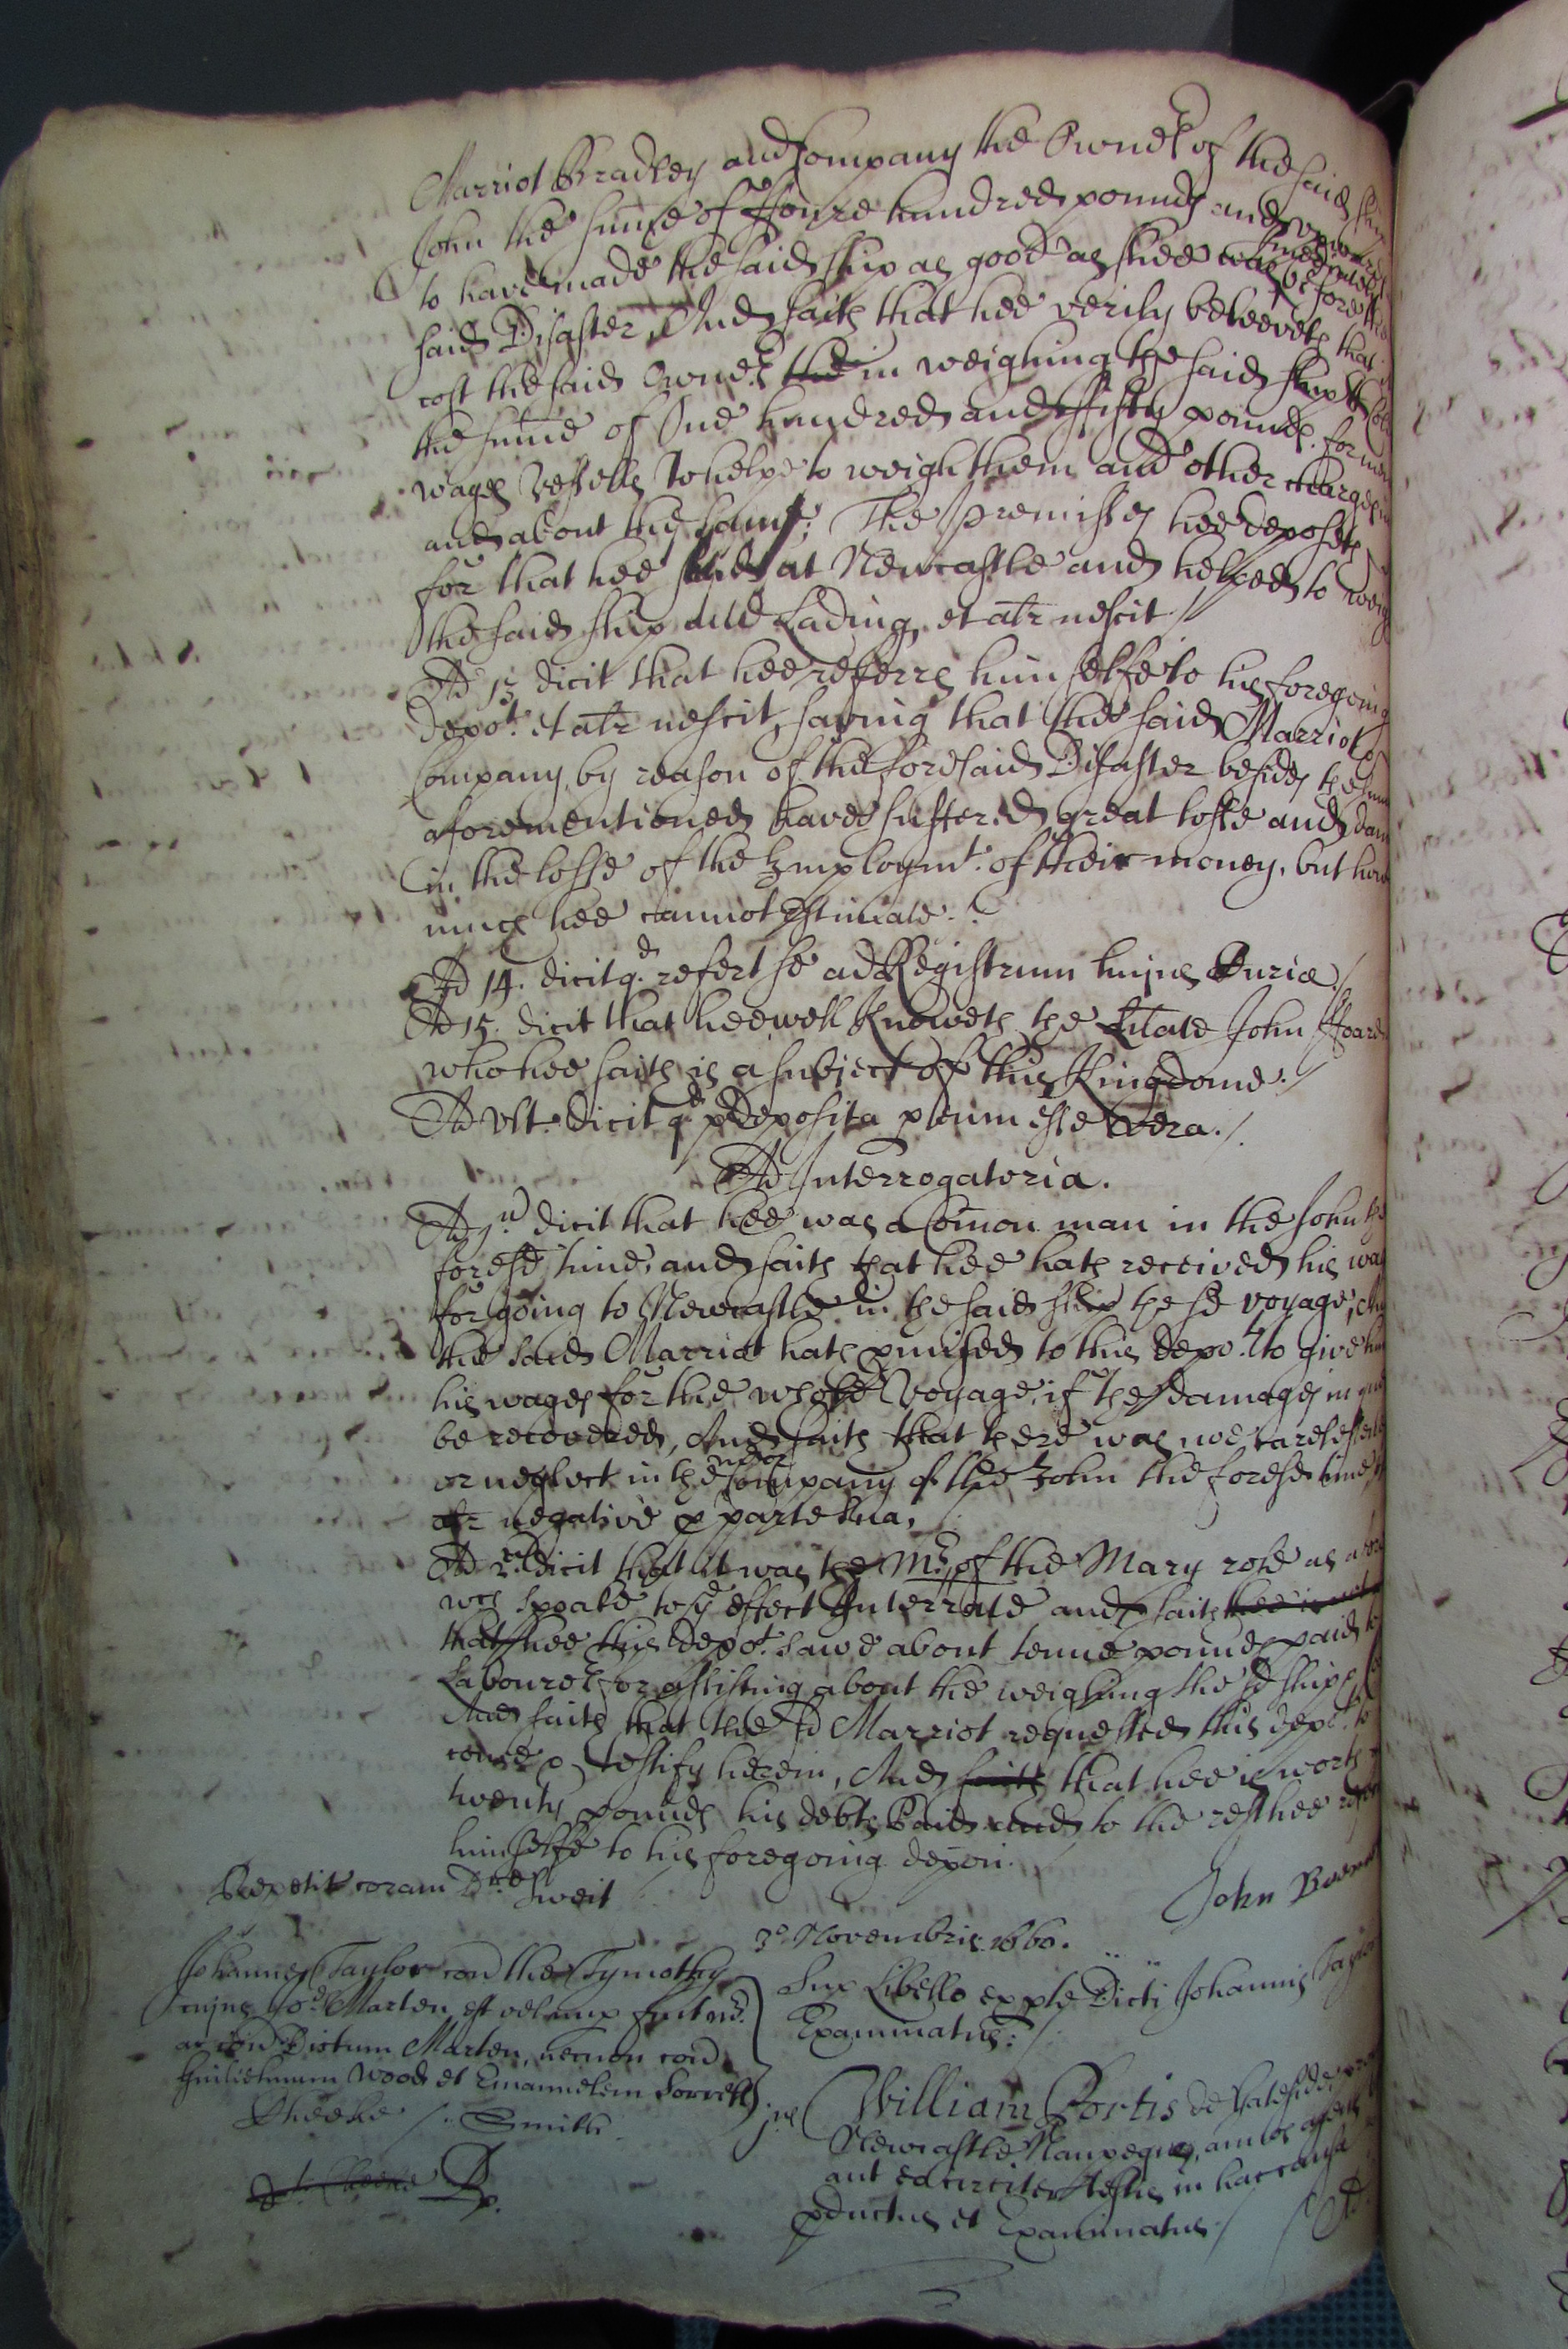 Marriot Bradley and Company the Owners of the said ship
John the summe of ffoure hundred pounds and
to have made the said ship as good as shee was before the
said Disaster, And saith that hee verily beleeveth that it
cost the said Owners the in weighing the said ship
the summe of One hundred and ffifty pounds for mens
wages Vessells to helpe to weigh them and other charges in
and about the same; The Premisses hee deposeth
for that hee stayed at Newcastle and helped to weigh
the said ship and Lading, et alr nescit /
Ad 13 dicit that hee referrs himselfe to his foregoing
depot. et alr nescit, saving that the said Marriot &
Company, by reason of the foresaid Disaster besides the summ
aforementioned have suffered great losse and dam
in the losse of the Employmt. of their money, but how
much hee cannot estimate.
Ad 14. dicit qd. refert se ad Registrum huius Curiæ /
Ad 15. dicit that hee well knoweth the Arlate John
who hee saith is a subject of this Kingdome. /
Ad Ult. dicit qd pdeposita p eum esse vera. /.
Ad Interrogatoria.
Ad 1.u dicit that hee was a Comon man in the John the
foresd time, and saith that hee hath received his wag
for going to Newcastle in the said ship the sd voyage, And
the said Marriot hath pmised to this depot. to give him
his wages for the whole Voyage, if the damages in
be recovered, And saith that there was noe carelesnes
or neglect in the mr or company of the John the foresd time,
alr negative p parte sua, /
Ad 2. dicit that it was the Mr. of the Mary rose as
wch spoake to ye effect Interrate and saith hee is not
that hee this depot. sawe about tenne pounds paid to
Labourers for assisting about the weighing the sd ship,
And saith that the sd Marriot requested this depot. to
come & testify herein, And saith that hee is worth
twenty pounds his debts Paid and to the rest hee refers
himselfe to his foregoing depon.
Repetit coram Dre Sweit
John
3o Novembris. 1660.
Johannes Taylor con the Tymothy
cujus Marten est vel nup fuit mr.
ac con Dictum Marten, necnon con
Guilielmum Wood et Emanuelem Sorrell
Cheeke /. Smith.
Sup Libello ex pte Dicti Johannis Taylor
Examinatus: /
jus William Portis de Gateside prope
Newcastle Naupegus, annos agens
aut eo circiter testis in hac causa
pductus et Examinatus /
Ad